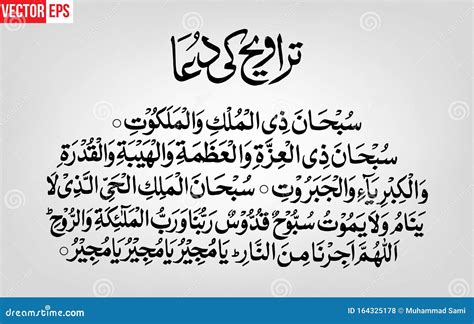 VECTOR EPS
تراویح کی دُعا
سُبْحَانَ ذِی الْمُلْكِ وَالْمَلَكُوْتِ ○
سُبْحَانَ ذِی الْعِزَّةِ وَالْعَظَمَةِ وَالْهَيْبَةِ وَالْقُدْرَةِ
وَالْكِبْرِيَآءِ وَالْجَبَرُوْتِ ○ سُبْحَانَ الْمَلِكِ الْحَیِّ الَّذِیْ لَا
يَنَامُ وَلَا يَمُوْتُ سُبُّوْحٌ قُدُّوْسٌ رَبُّنَا وَرَبُّ الْمَلٰٓئِكَةِ وَالرُّوْحِ ط
اَللّٰهُمَّ اَجِرْنَا مِنَ النَّارِ ط يَا مُجِيْرُ يَا مُجِيْرُ يَا مُجِيْرُ ○
dreamstime.com
ID 164325178 © Muhammad Sami